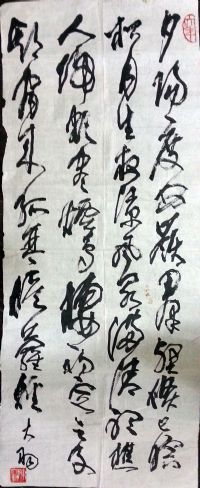 夕陽度西嶺羣壑倏已暝
松月生夜涼風泉滿清聽樵
人歸欲盡煙鳥棲初定之子
期宿來孤琴候蘿徑 大羽